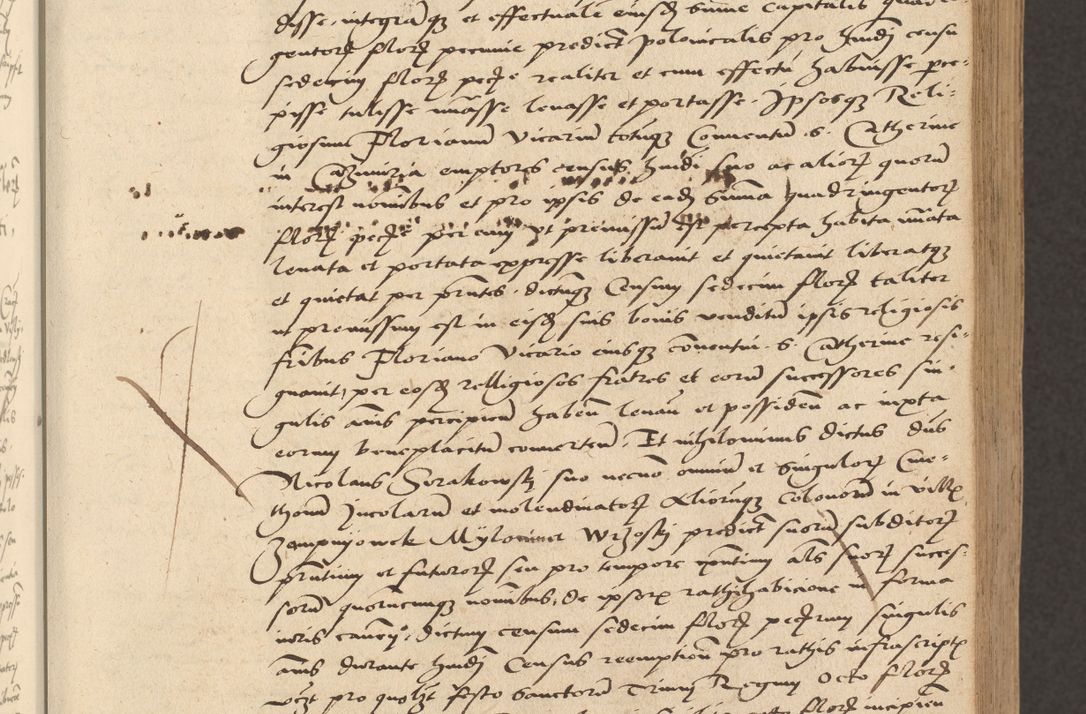 disse, integramqz et effectualem eiusdem summe capitalis quadri-
gentorum florenorum pecunie predicte polonicalis pro huiusmodi censu
sedecim florenorum pecunie realiter et cum effectu habuisse perce-
pisse tulisse numerasse levasse et portasse. Ipsosqz Reli-
giosum Florianum Vicarium totumqz Conventum S. Catherine
in Cazimiria emptores census huiusmodi suo ac aliorum quorum
interest nominibus et pro ipsis de eadem summa quadringentorum
florenorum pecunie per eum ut premissum est percepta habita numerata
levata et portata expresse liberavit et quietavit liberatqz
et quietat per presentes. dictumqz Censum sedecim florenorum taliter
ut premissum est in eisdem suis bonis venditum ipsis religiosis
fratribus Floriano Vicario eiusqz conventui S. Catherine resi-
gnavit, per eosdem relligiosos fratres et eorum successores sin-
gulis annis percipiendum habendum levandum et possidendum ac iuxta
eorum beneplacitum convertendum. Et nihilominus dictus dominus
Nicolaus Sirakowski suo necnon omnium et singulorum Cme-
thonum Incolarum et molendinatorum Aliorumqz colonorum in villis
Mylomier Wrzoski predictis suorum subditorum
presentium et futurorum seu pro tempore existentium aliorum suorum succes-
sorum quorumcumqz nominibus, de ipsorum rathihabicione in forma
iuris cavens, dictum censum sedecim florenorum pecuniarum singulis
annis durante huiusmodi Census reemptione pro rathis infrascriptis
videlicet pro quolibet festo Sanctorum Trium Regum Octo florenos
florenos incipiendo